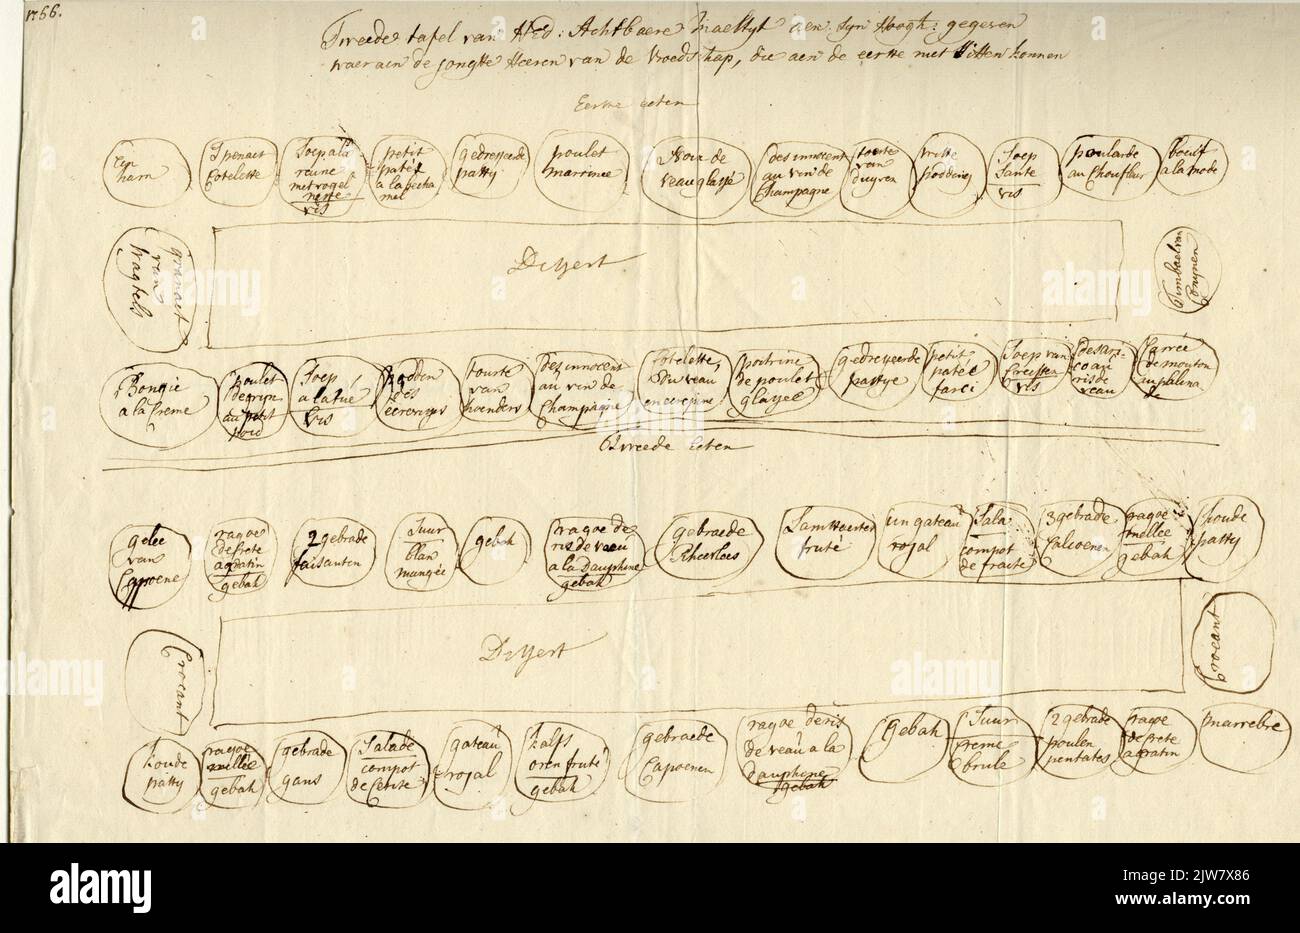 1766.
Tweede tafel van H: Ed: Achtbaere Maeltyt aen syn Hoogh: gegeven
waeraen de jongste Heeren van de Vroedschap, die aen de eerste niet sitten konnen
Eerste eeten
ham
Spenaet
Cotelette
Soep a la
reine
met vogel
nesse
vis
petit
paté
a la becha
mel
gedresseerde
patty
poulet
marrinee
Noix de
veau glassé
des innocent
au vin de
Champagne
tourte
van
duyven
witte
podding
Soep
Sante
vis
poularde
au Choufleur
boeuf
a la mode
granaet
van
Wagtels
Dessert
Timbael van
Conynen
a la Creme
poulet
Soep
vis
podden
des
tourte
van
hoenders
des innocent
au vin de
Champagne
Cotelette
du veau
en
poitrine
de poulet
glassee
gedresseerde
pattye
petit
paté
farci
Soep van
Creeften
vis
ris de
veau
Carrée
de mouton
Tweede Eeten
gelee
van
Cappoene
ragoe
de crete
gebak
2 gebrade
faisanten
Suur
blan
mangée
gebak
ragoe de
ris de veau
a la Dauphine
gebak
gebraede
Lamsoester
fruté
un gateau
rojal
Sala
compot
de fruite
3 gebrade
Calcoenen
ragoe
mellée
gebak
koude
patty
Crocant
Dessert
Crocant
koude
patty
ragoe
mellée
gebak
gebrade
gans
Salade
compot
de
gateau
rojal
kalfs
oren fruté
gebak
gebraede
Capoenen
ragoe de ris
de veau a la
dauphine
gebak
gebak
Suur
creme
brule
2 gebrade
poulen
pentates
ragoe
de crete
marrebre
alamy
alamy
Image ID: 2JW7X86
www.alamy.com